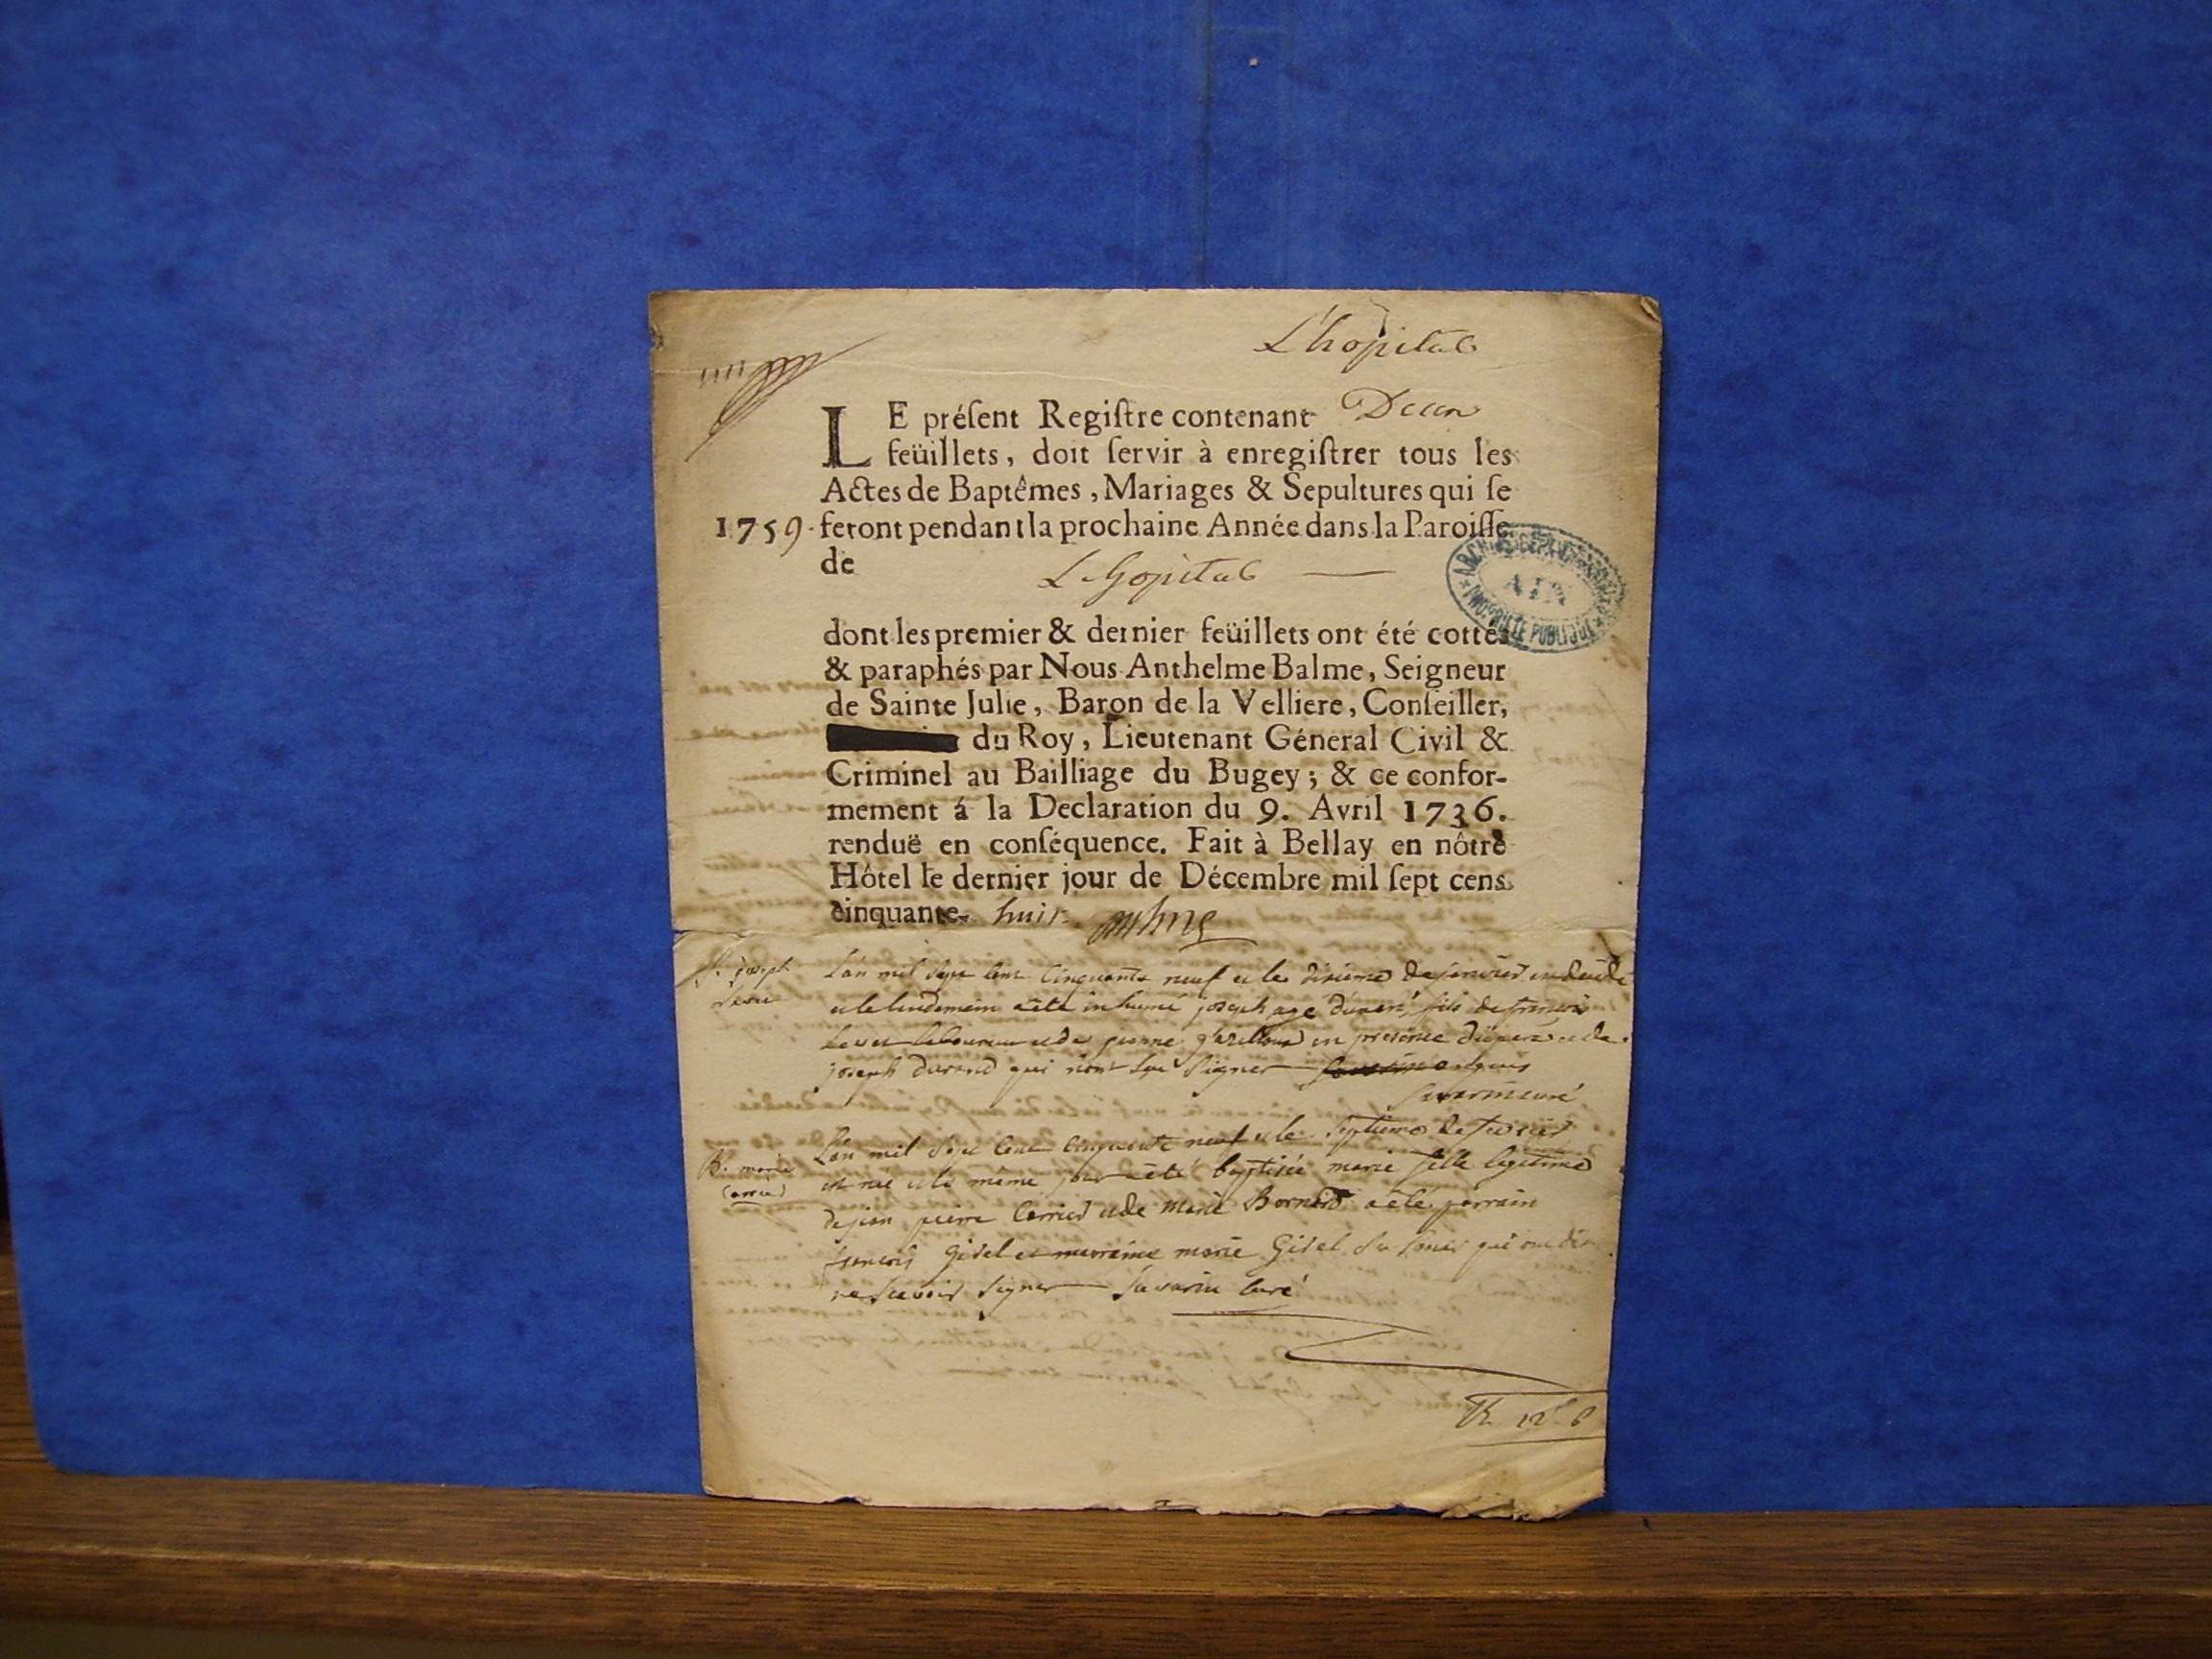 L'hopital
LE préſent Regiſtre contenant Deux
feüillets, doit ſervir à enregiſtrer tous les
Actes de Baptêmes, Mariages & Sepultures qui ſe
1759. feront pendant la prochaine Année dans la Paroiſſe
de L'hopital
ARCHIVES DEPARTEMENTALES AIN
dont les premier & dernier feüillets ont été cottés
& paraphés par Nous Anthelme Balme, Seigneur
de Sainte Julie, Baron de la Velliere, Conſeiller,
du Roy, Lieutenant Géneral Civil &
Criminel au Bailliage du Bugey; & ce confor-
mement á la Declaration du 9. Avril 1736.
renduë en conſéquence. Fait à Bellay en nôtre
Hôtel le dernier jour de Décembre mil ſept cens
cinquante- huit
S. joseph L'an mil sept cent cinquante neuf et le dixieme de janvier est decedé
et le lendemain a eté inhumé joseph agé d'un an fils de francois
laboureur et de en presence et de
joseph durand qui n'ont sçu signer
savarin curé
B. marie L'an mil sept cent cinquante neuf et le septieme de fevrier
carrier est née et le même jour a eté baptisée marie fille legitime
de jean pierre Carrier et de Marie Bornard a eté parrain
francois Gidel et marraine marie Gidel sa soeur qui ont dit
ne sçavoir signer savarin curé